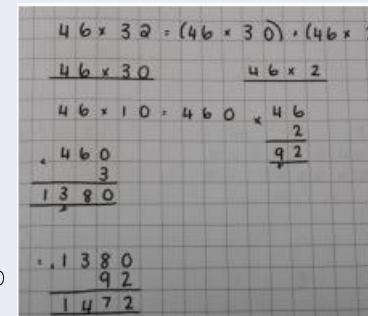 46 × 32 = (46 × 30) + (46 ×
46 × 30 46 × 2
46 × 10 = 460 × 46
2
92
× 460
3
1380
= + 1380
92
1472